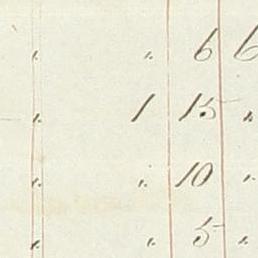 " " 6 6
" 1 15 "
" " 10 "
" " 5 "